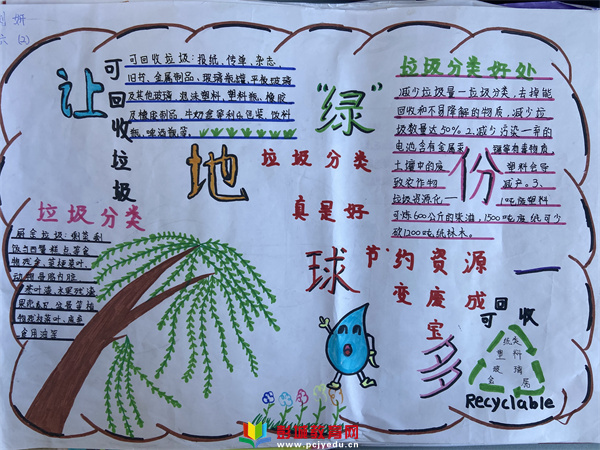 妍
六 (2)
让
地
球
多
一
份
“绿”
可回收垃圾
可回收垃圾:报纸、传单、杂志、
旧书、金属制品、玻璃瓶罐、平板玻璃
及其他玻璃、泡沫塑料、塑料瓶、橡胶
及橡胶制品、牛奶盒等利乐包装、饮料
瓶、啤酒瓶等。
垃圾分类好处
减少垃圾量一垃圾分类,去掉能
回收和不易降解的物质,减少垃
圾数量达50%2.减少污染一弃的
电池含有金属汞、镉等有毒物质,
土壤中的废 塑料会导
致农作物 减产。3、
垃圾资源化一 1吨废塑料
可炼600公斤的柴油,1500吨废纸可少
砍1200吨纸林木。
垃圾分类
真是好
节约资源
变废成
宝
垃圾分类
厨余垃圾:剩菜剩
饭与西餐糕点等食
物残余、菜梗菜叶
动物骨骼内脏
茶叶渣、水果残渣
果壳瓜皮、盆景等植
物残枝落叶、废弃
食用油等
可回收
纸类
塑料
玻璃
金属
Recyclable
彭城教育网
www.pcjyedu.cn